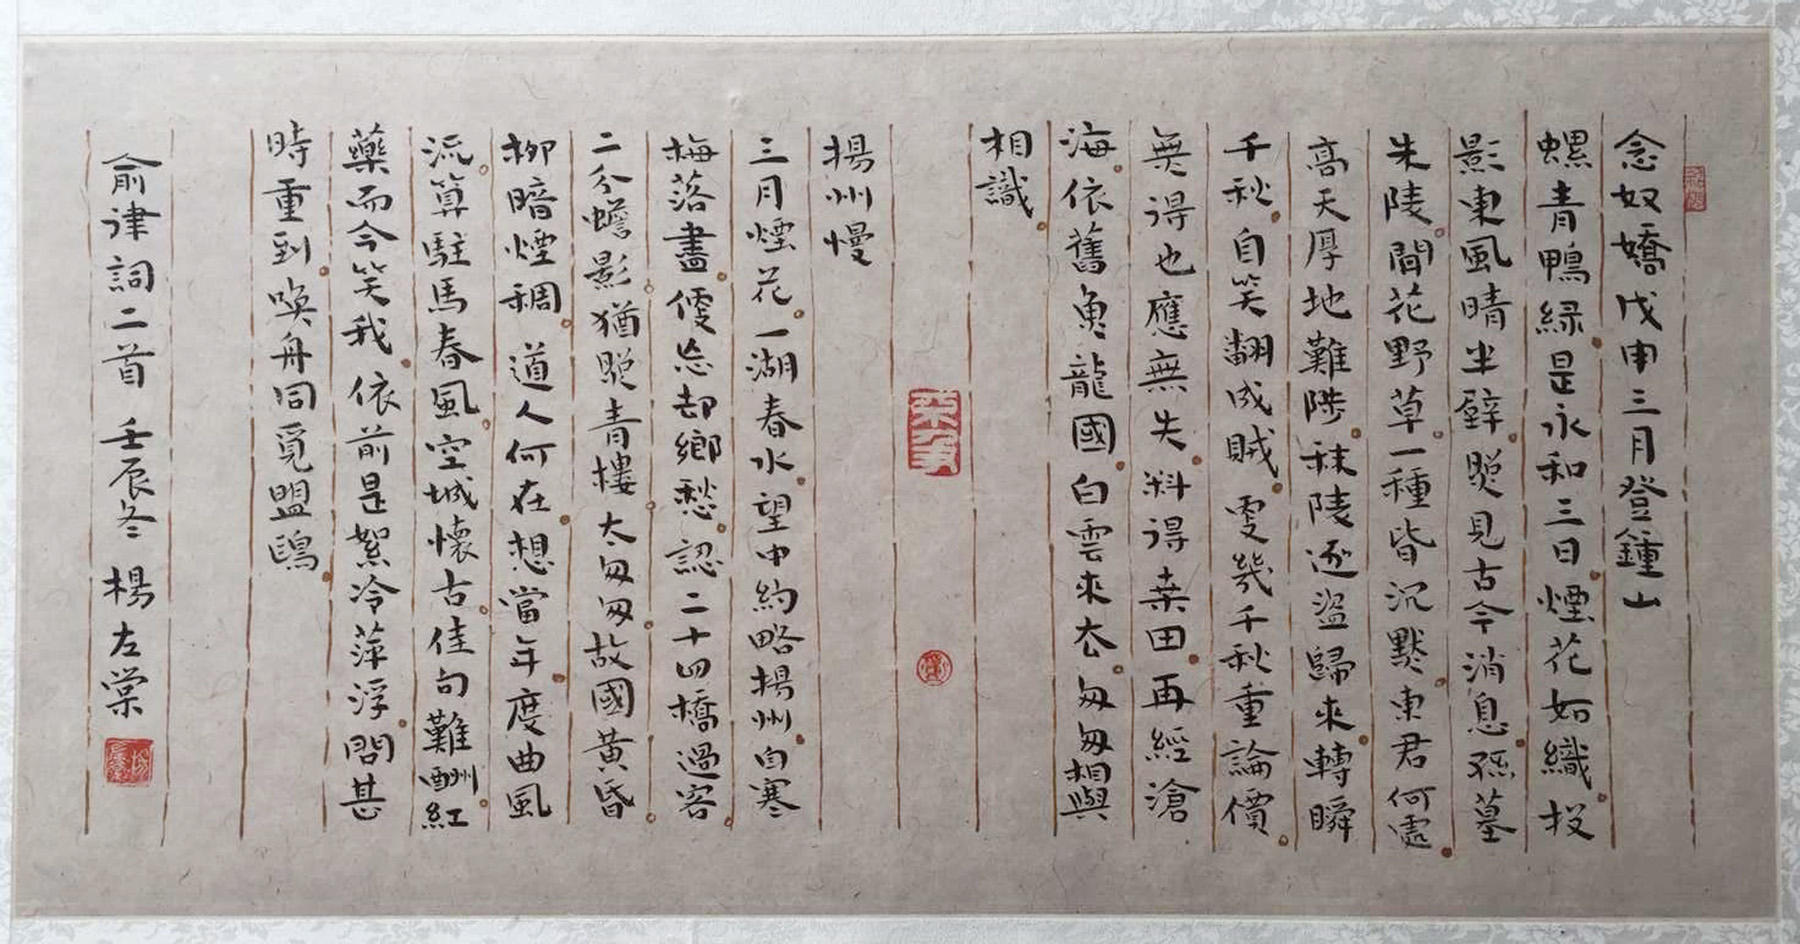 念奴嬌戊申三月登鍾山
螺青鴨緑是永和三日煙花如織投
影東風晴半壁照見古今消息孫墓
朱陵間花野草一種皆沉默東君何處
高天厚地難陟秣陵逐盜歸來轉瞬
千秋自笑翻成賊更幾千秋重論價
無得也應無失料得桑田再經滄
海依舊魚龍國白雲來去匆匆相與
相識
揚州慢
三月煙花一湖春水望中約略揚州自寒
梅落盡便忘却鄉愁認二十四橋過客
二分蟾影猶照青樓太匆匆故國黃昏
柳暗煙稠道人何在想當年度曲風
流算駐馬春風空城懷古佳句難酬紅
藥而今笑我依前是絮冷萍浮問甚
時重到喚舟同覓盟鷗
俞律詞二首 壬辰冬 楊左棠